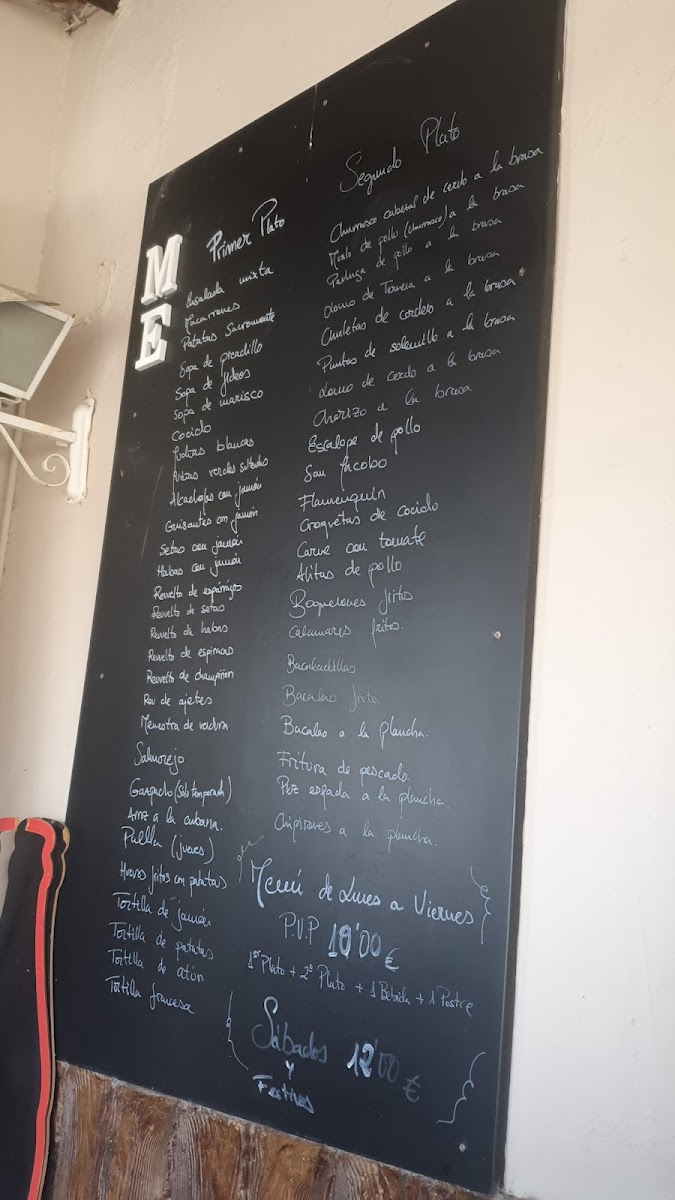 ME
Primer Plato
Ensalada mixta
Macarrones
Patatas Sacromonte
Sopa de picadillo
Sopa de fideos
Sopa de marisco
Cocido
Judías blancas
Judías verdes salteadas
Alcachofas con jamón
Guisantes con jamón
Setas con jamón
Habas con jamón
Revuelto de espárragos
Revuelto de setas
Revuelto de habas
Revuelto de espinacas
Revuelto de champiñon
Rev de ajetes
Menestra de verdura
Salmorejo
Gazpacho (Solo temporada)
Arroz a la cubana.
Paella (jueves)
Huevos fritos con patatas
Tortilla de jamón
Tortilla de patatas
Tortilla de atún
Tortilla francesa
Segundo Plato
Churrasco cabezal de cerdo a la brasa
Muslo de pollo (churrasco) a la brasa
Pechuga de pollo a la brasa
Lomo de Ternera a la brasa
Chuletas de cordero a la brasa
Puntas de solomillo a la brasa
Lomo de cerdo a la brasa
Chorizo a la brasa
Escalope de pollo
San Jacobo
Flamenquín
Croquetas de cocido
Carne con tomate
Alitas de pollo
Boquerones fritos
Calamares fritos.
Bacaladillas
Bacalao frito.
Bacalao a la plancha.
Fritura de pescado
Pez espada a la plancha.
Chipirones a la plancha.
Menú de Lunes a Viernes
P.V.P 10'00 €
1er Plato + 2º Plato + 1 Bebida + 1 Postre
Sábados 12'00 €
y
Festivos